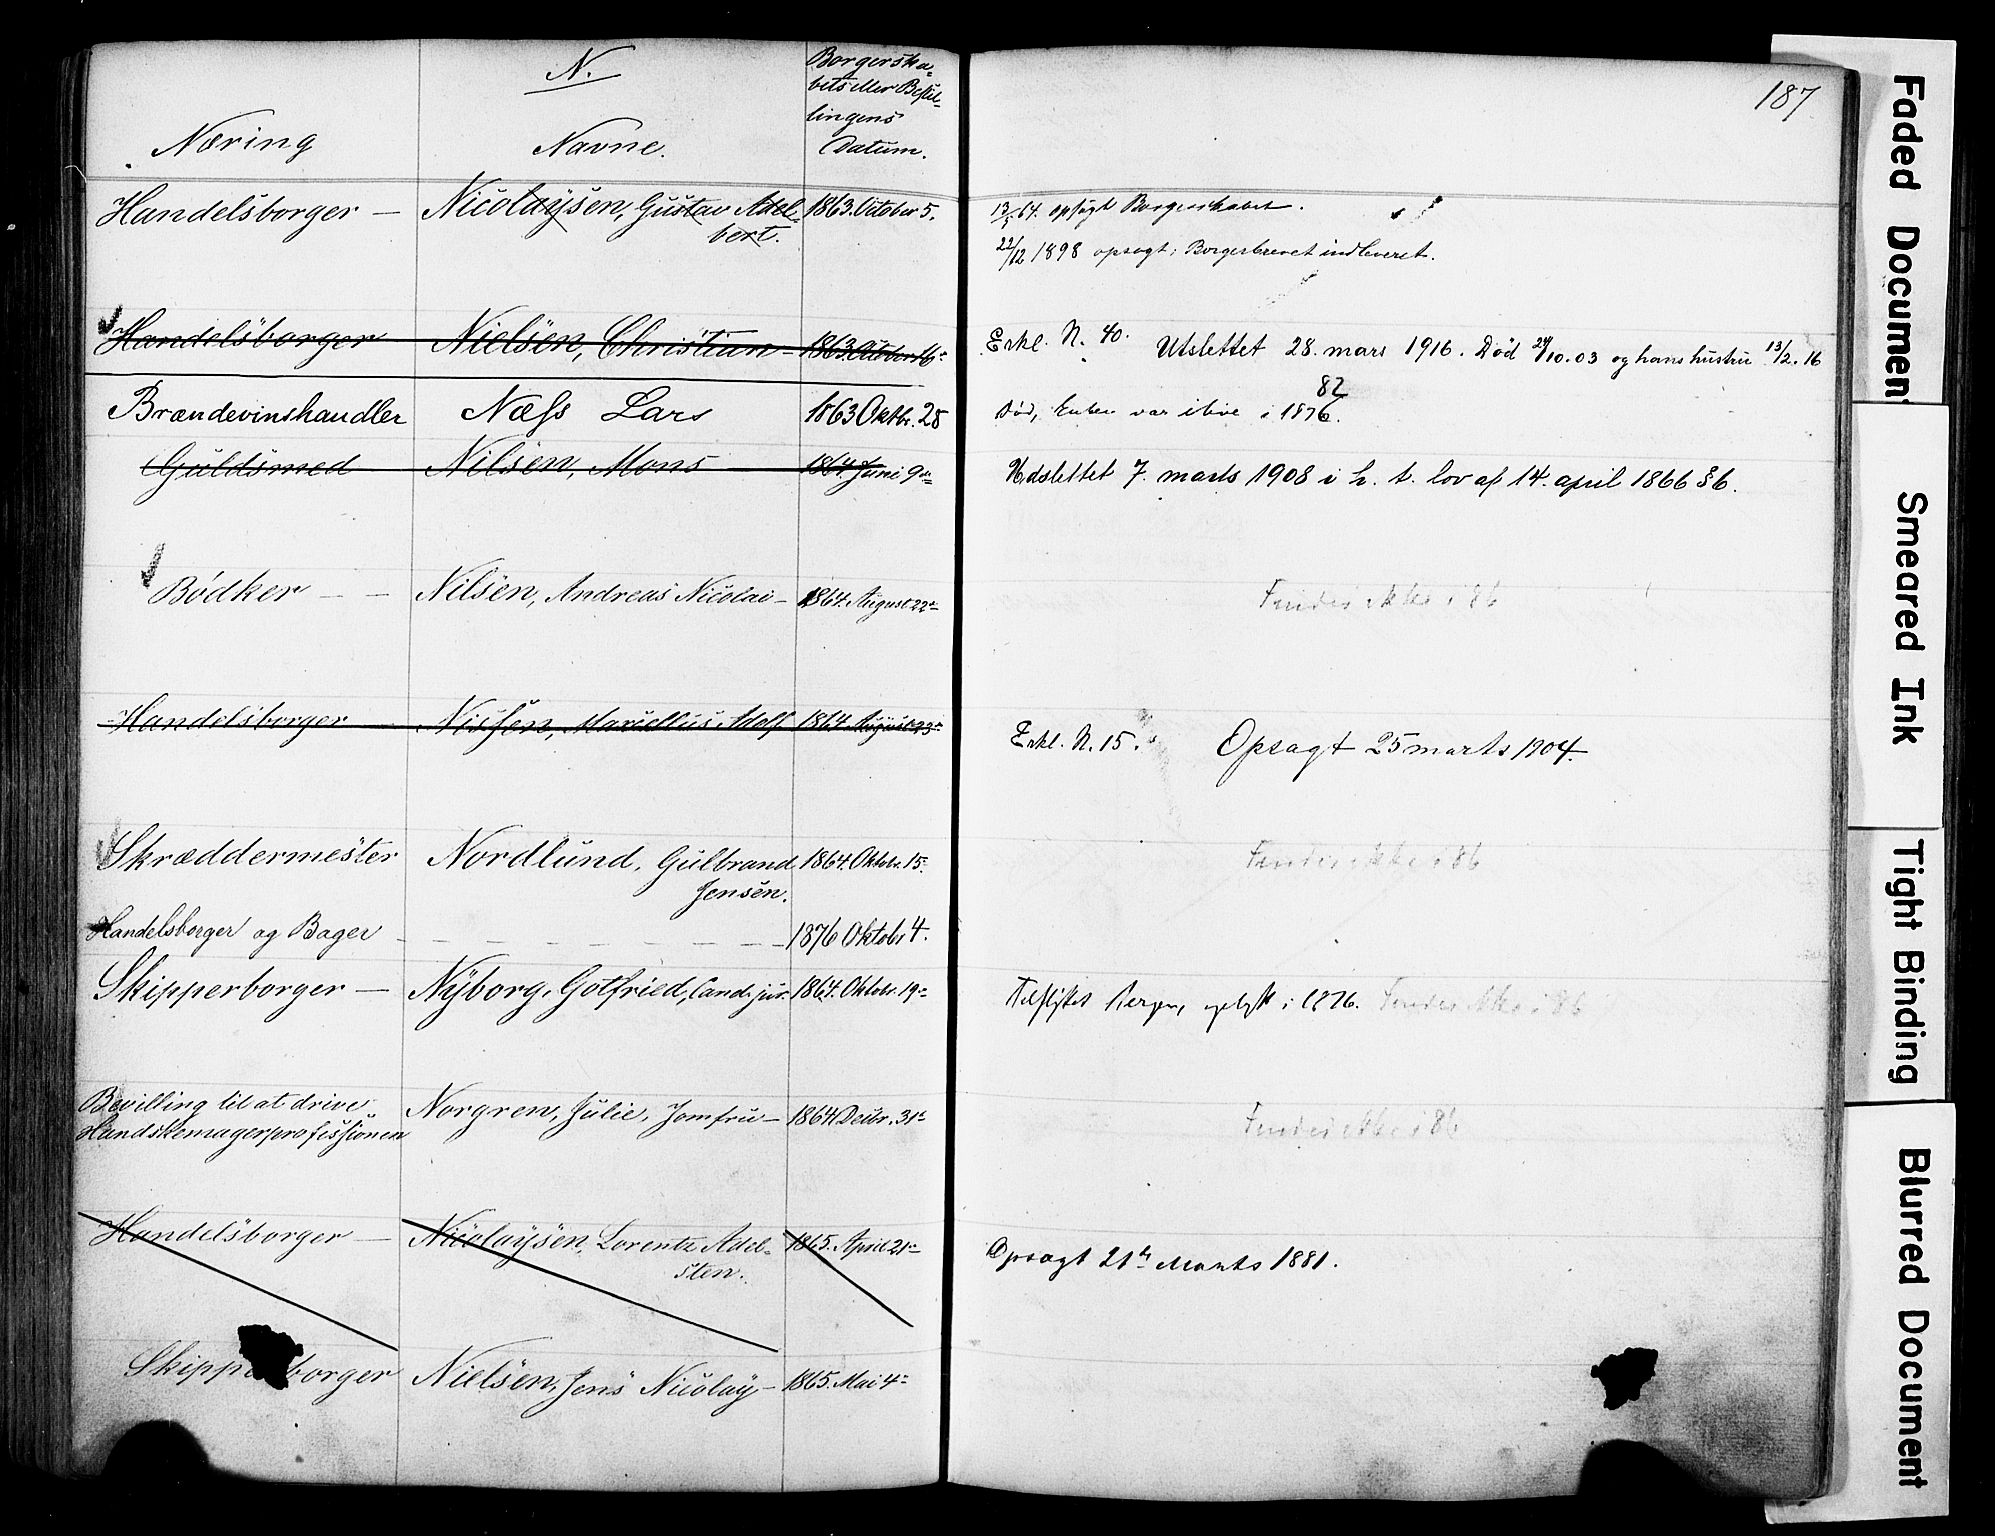 N.
Borgerska-
bets eller Bestil-
lingens
Datum.
Næring
Navne.
187
Handelsborger — Nicolaysen, Gustav Adel- 1863. October 5.
bert.
13/5 64. opsagt Borgerskabet.
22/12 1898 opsagt; Borgerbrevet indleveret.
Handelsborger Nielsen, Christian — 1863. October 16de
Erkl. N. 40. Utslettet 28. mars 1916. Død 24/10.03 og hans hustru 13/2.16
Brændevinshandler Næss Lars 1863 Oktbr. 28
82
Død, Enken var ilive i 1876.
Guldsmed Nilsen, Mons 1864. Juni 9de
Udslettet 7. marts 1908 i h. t. lov af 14. april 1866 § 6.
Bødker — — Nilsen, Andreas Nicolai — 1864. August 22de
Findes ikke i 86
Handelsborger Nissen, Marcellus Adolf 1864. August 23de
Erkl. N. 15. Opsagt 25 marts 1904.
Skræddermester Nordlund, Gulbrand 1864. Oktobr. 15.
Jensen.
Findes ikke i 86
Handelsborger og Bager — — — — — — — — 1876 Oktobr 4.
Skipperborger — Nyborg, Gotfried, Cand. jur. 1864. Oktobr. 19de
Tilflyttet Bergen, opsagt i 1876. Findes ikke i 86
Bevilling til at drive
Handskemagerprofessionen
Norgren, Julie, Jomfru — 1864 Decbr. 31te
Findes ikke i 86
Handelsborger — Nicolaysen, Lorentz Adel- 1865. April 21de
sten.
Opsagt 21de Marts 1881.
Skipperborger Nielsen, Jens Nicolay — 1865. Mai 4de
Faded Document
Smeared Ink
Tight Binding
Blurred Document